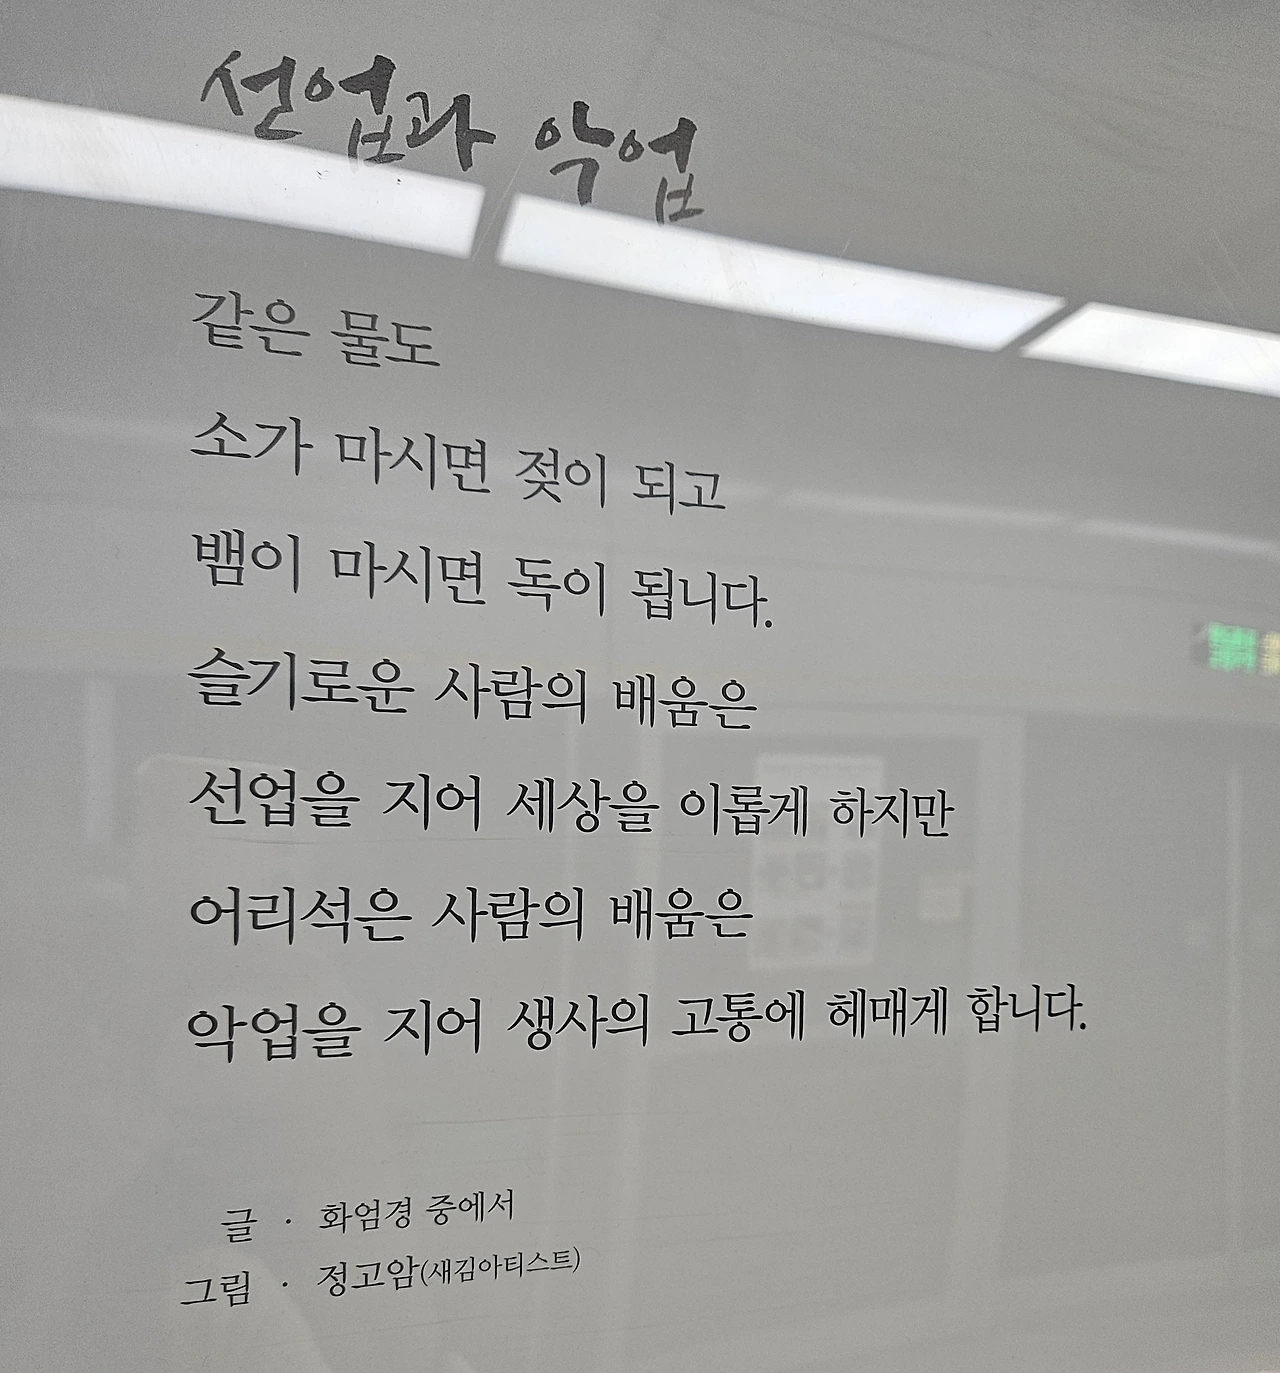 선업과 악업
같은 물도
소가 마시면 젖이 되고
뱀이 마시면 독이 됩니다.
슬기로운 사람의 배움은
선업을 지어 세상을 이롭게 하지만
어리석은 사람의 배움은
악업을 지어 생사의 고통에 헤매게 합니다.
글 · 화엄경 중에서
그림 · 정고암(새김아티스트)